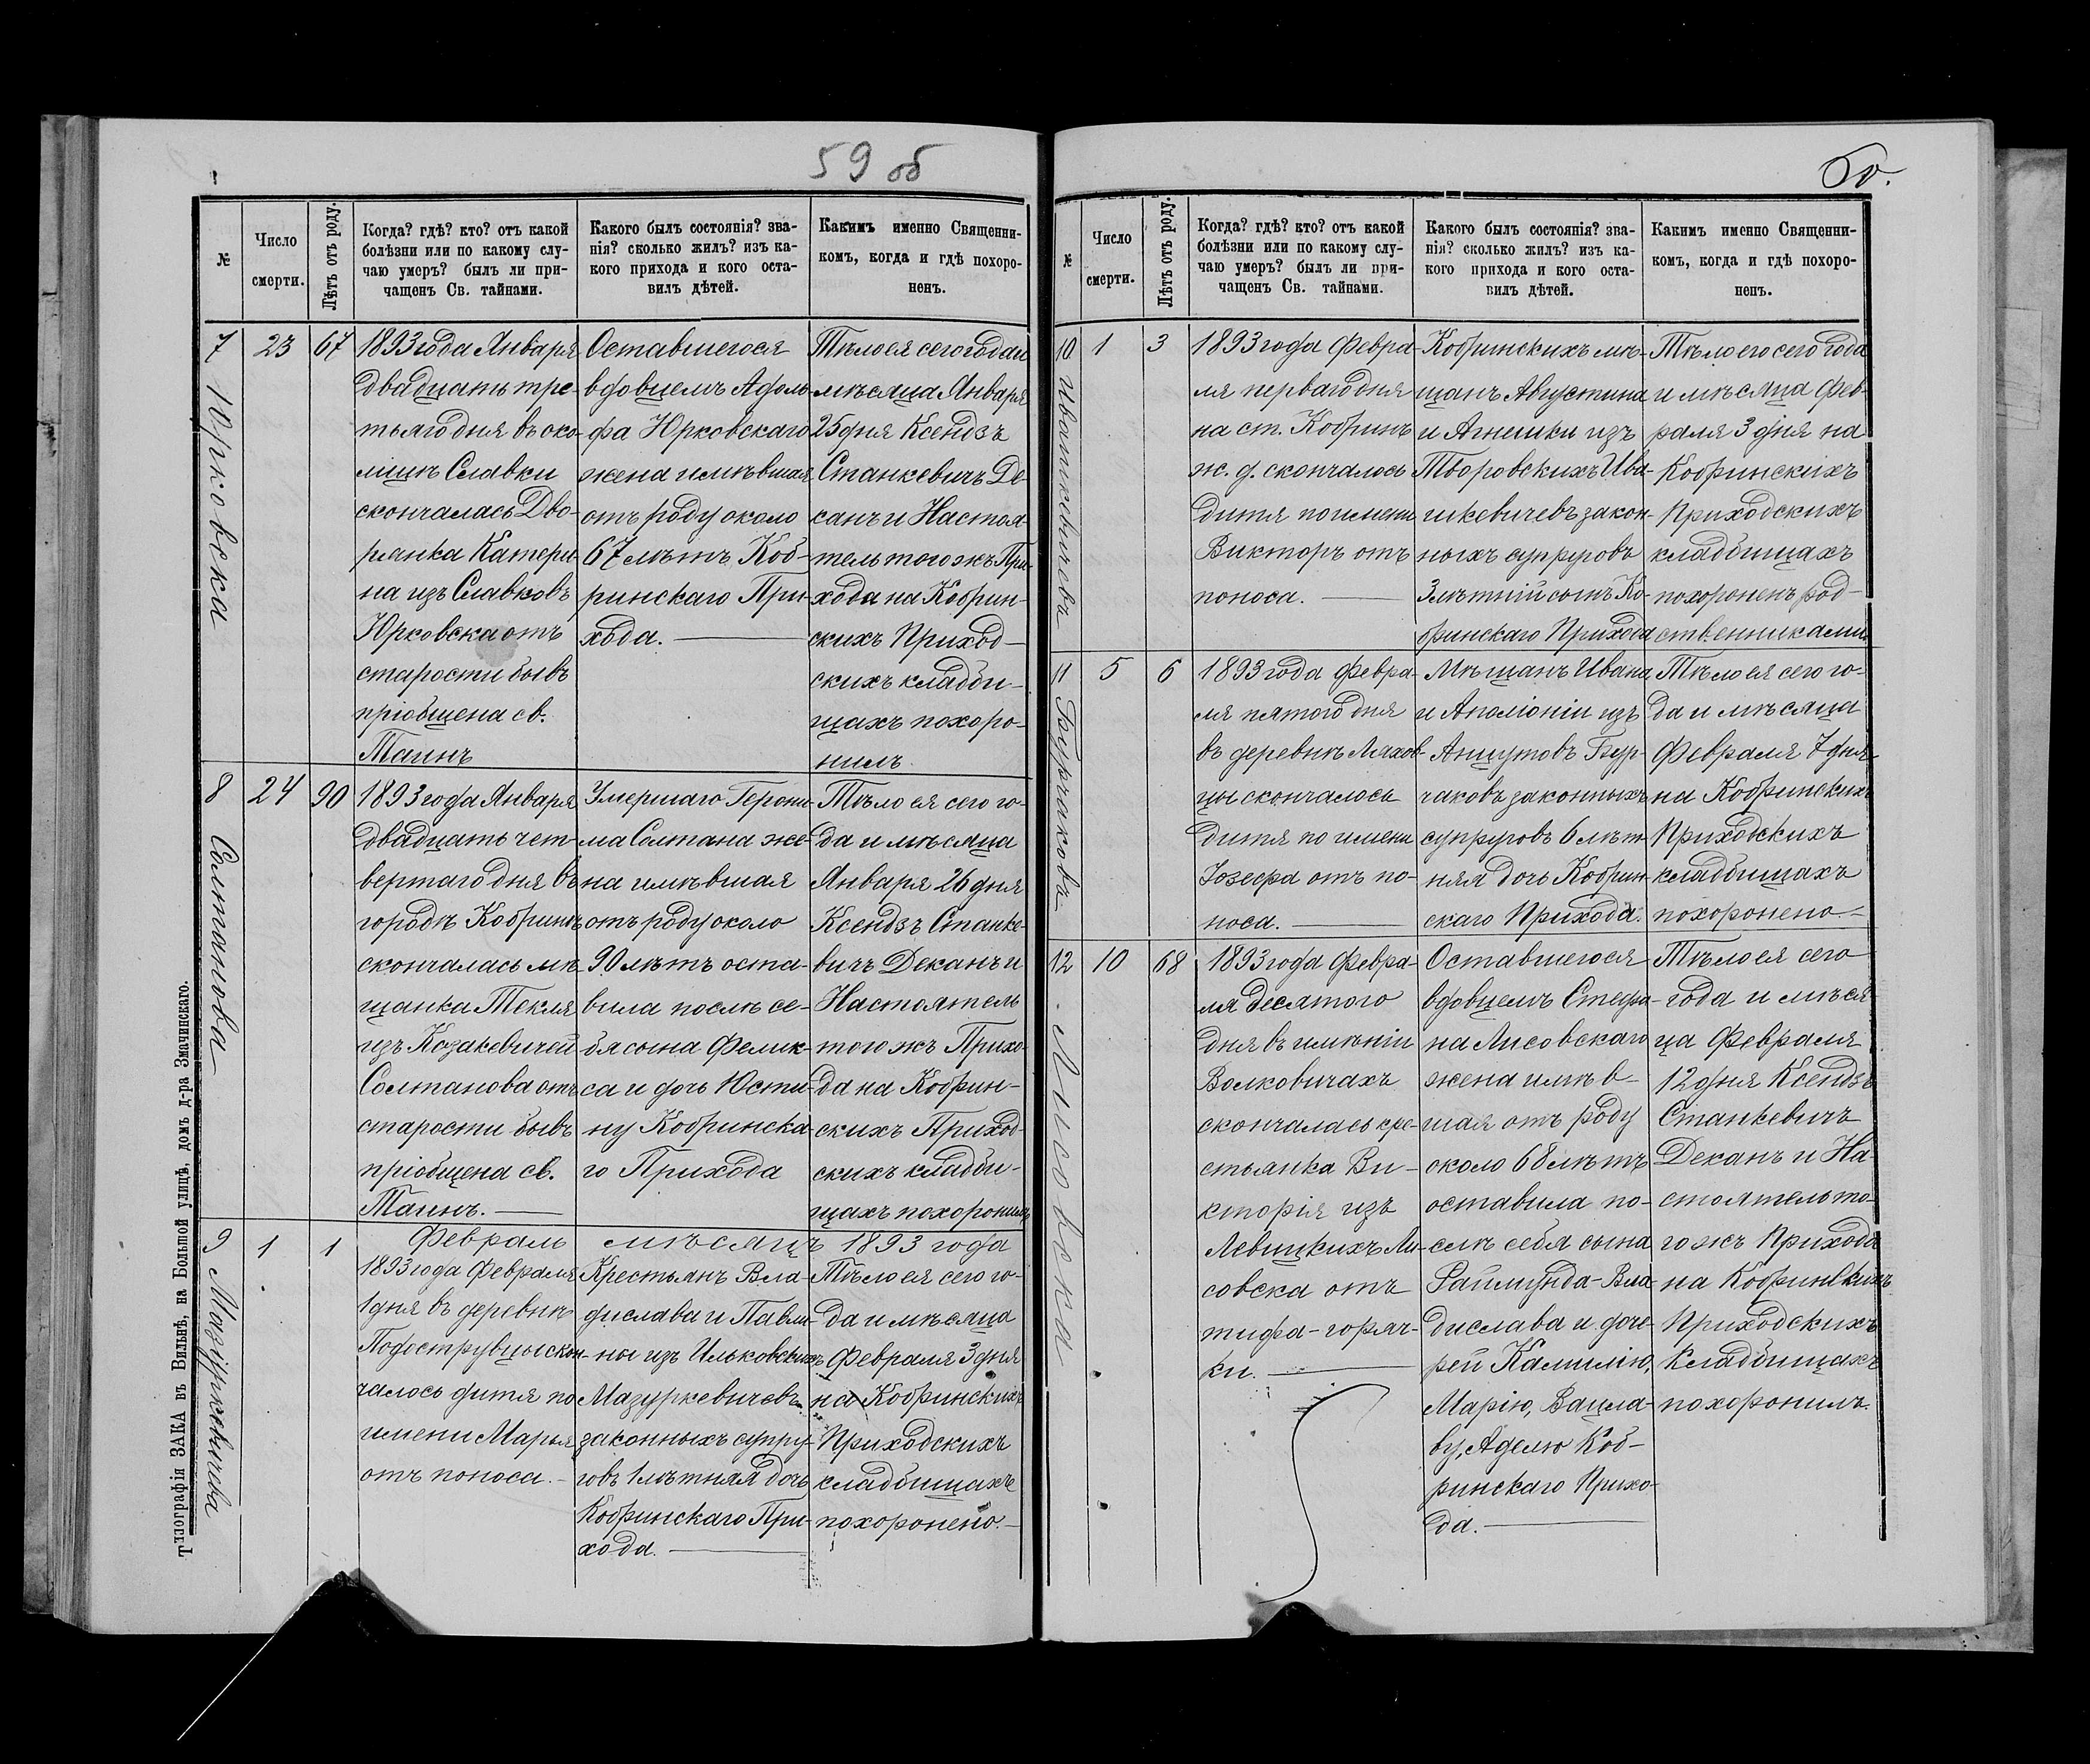 59 об
№
Число
смерти.
Лѣтъ отъ роду.
Когда? гдѣ? кто? отъ какой
болѣзни или по какому слу-
чаю умеръ? былъ ли при-
чащенъ Св. тайнами.
Какого былъ состоянія? зва-
нія? сколько жилъ? изъ ка-
кого прихода и кого оста-
вилъ дѣтей.
Какимъ именно Священни-
комъ, когда и гдѣ похоро-
ненъ.
7
Юрковска
23
67
1893 года Января
двадцать тре-
тьяго дня въ око-
лицѣ Славки
скончалась Дво-
рянка Катери-
на изъ Славковъ
Юрковска отъ
старости бывъ
пріобщена св.
Таинъ
Оставшегося
вдовцемъ Адоль-
фа Юрковскаго
жена имѣвшая
отъ роду около
67 лѣтъ Коб-
ринскаго При-
хода.
Тѣло ея сего года и
мѣсяца Января
25 дня Ксендзъ
Станкевичъ Де-
канъ и Настоя-
тель того жъ При-
хода на Кобрин-
скихъ Приход-
скихъ кладби-
щахъ похоро-
нилъ.
8
Солтанова
24
90
1893 года Января
двадцать чет-
вертаго дня въ
городѣ Кобринѣ
скончалась мѣ-
щанка Текля
изъ Козакевичей
Солтанова отъ
старости бывъ
пріобщена св.
Таинъ.
Умершаго Герони-
ма Солтана же-
на имѣвшая
отъ роду около
90 лѣтъ оста-
вила послѣ се-
бя сына Фелик-
са и дочь Юсти-
ну Кобринска-
го Прихода
Тѣло ея сего го-
да и мѣсяца
Января 26 дня
Ксендзъ Станке-
вичъ Деканъ и
Настоятель
того жъ Прихо-
да на Кобрин-
скихъ Приход-
скихъ кладби-
щахъ похоронилъ
Февраль мѣсяцъ 1893 года
9
Мазуркевичова
1
1
1893 года Февраля
1 дня въ деревнѣ
Подострувцы скон-
чалось дитя по
имени Марья
отъ поноса.
Крестьянъ Вла-
дислава и Павли-
ны изъ Ильковскихъ
Мазуркевичевъ
законныхъ супру-
говъ 1 лѣтняя дочь
Кобринскаго При-
хода.
Тѣло ея сего го-
да и мѣсяца
Февраля 3 дня
на Кобринскихъ
Приходскихъ
кладбищахъ
похоронено.
Типографія ЗАКА въ Вильнѣ, на Большой улицѣ, домъ д-ра Змачинскаго.
60.
№
Число
смерти.
Лѣтъ отъ роду.
Когда? гдѣ? кто? отъ какой
болѣзни или по какому слу-
чаю умеръ? былъ ли при-
чащенъ Св. тайнами.
Какого былъ состоянія? зва-
нія? сколько жилъ? изъ ка-
кого прихода и кого оста-
вилъ дѣтей.
Какимъ именно Священни-
комъ, когда и гдѣ похоро-
ненъ.
10
1
3
1893 года Февра-
ля перваго дня
на ст. Кобринъ
ж. д. скончалось
дитя по имени
Викторъ отъ
поноса.
Кобринскихъ мѣ-
щанъ Августина
и Агнешки изъ
Творовскихъ Ива-
шкевичевъ закон-
ныхъ супруговъ
3 лѣтній сынъ Ко-
бринскаго Прихода
Тѣло его сего года
и мѣсяца Фев-
раля 3 дня на
Кобринскихъ
Приходскихъ
кладбищахъ
похороненъ род-
ственниками.
11
Бурчаковъ
5
6
1893 года Февра-
ля пятого дня
въ деревнѣ Ляхов-
цы скончалось
дитя по имени
Іозефа отъ по-
носа.
Мѣщанъ Ивана
и Аполіоніи изъ
Анцутовъ Бур-
чаковъ законныхъ
супруговъ 6 лѣт-
няя дочь Кобрин-
скаго Прихода.
Тѣло ея сего го-
да и мѣсяца
Февраля 7 дня
на Кобринскихъ
Приходскихъ
кладбищахъ
похоронено
12
Лисовска
10
68
1893 года Февра-
ля десятого
дня въ имѣніи
Волковичахъ
скончалась кре-
стьянка Ви-
кторія изъ
Левицкихъ Ли-
совска отъ
тифа-горяч-
ки.
Оставшегося
вдовцемъ Стефа-
на Лисовскаго
жена имѣв-
шая отъ роду
около 68 лѣтъ
оставила по-
слѣ себя сына
Раймунда-Вла-
дислава и доче-
рей Камилію,
Марію, Вацла-
ву, Аделю Коб-
ринскаго Прихо-
да.
Тѣло ея сего
года и мѣся-
ца Февраля
12 дня Ксендзъ
Станкевичъ
Деканъ и На-
стоятель то-
го жъ Прихода
на Кобринскихъ
Приходскихъ
Кладбищахъ
похоронилъ.